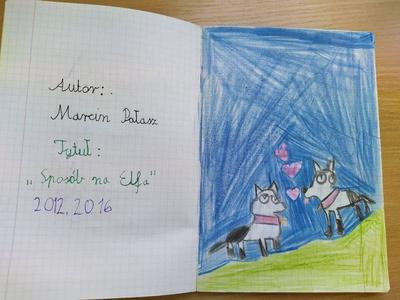 Autor: .
Marcin Pałasz
Tytuł :
„Sposób na Elfa"
2012, 2016